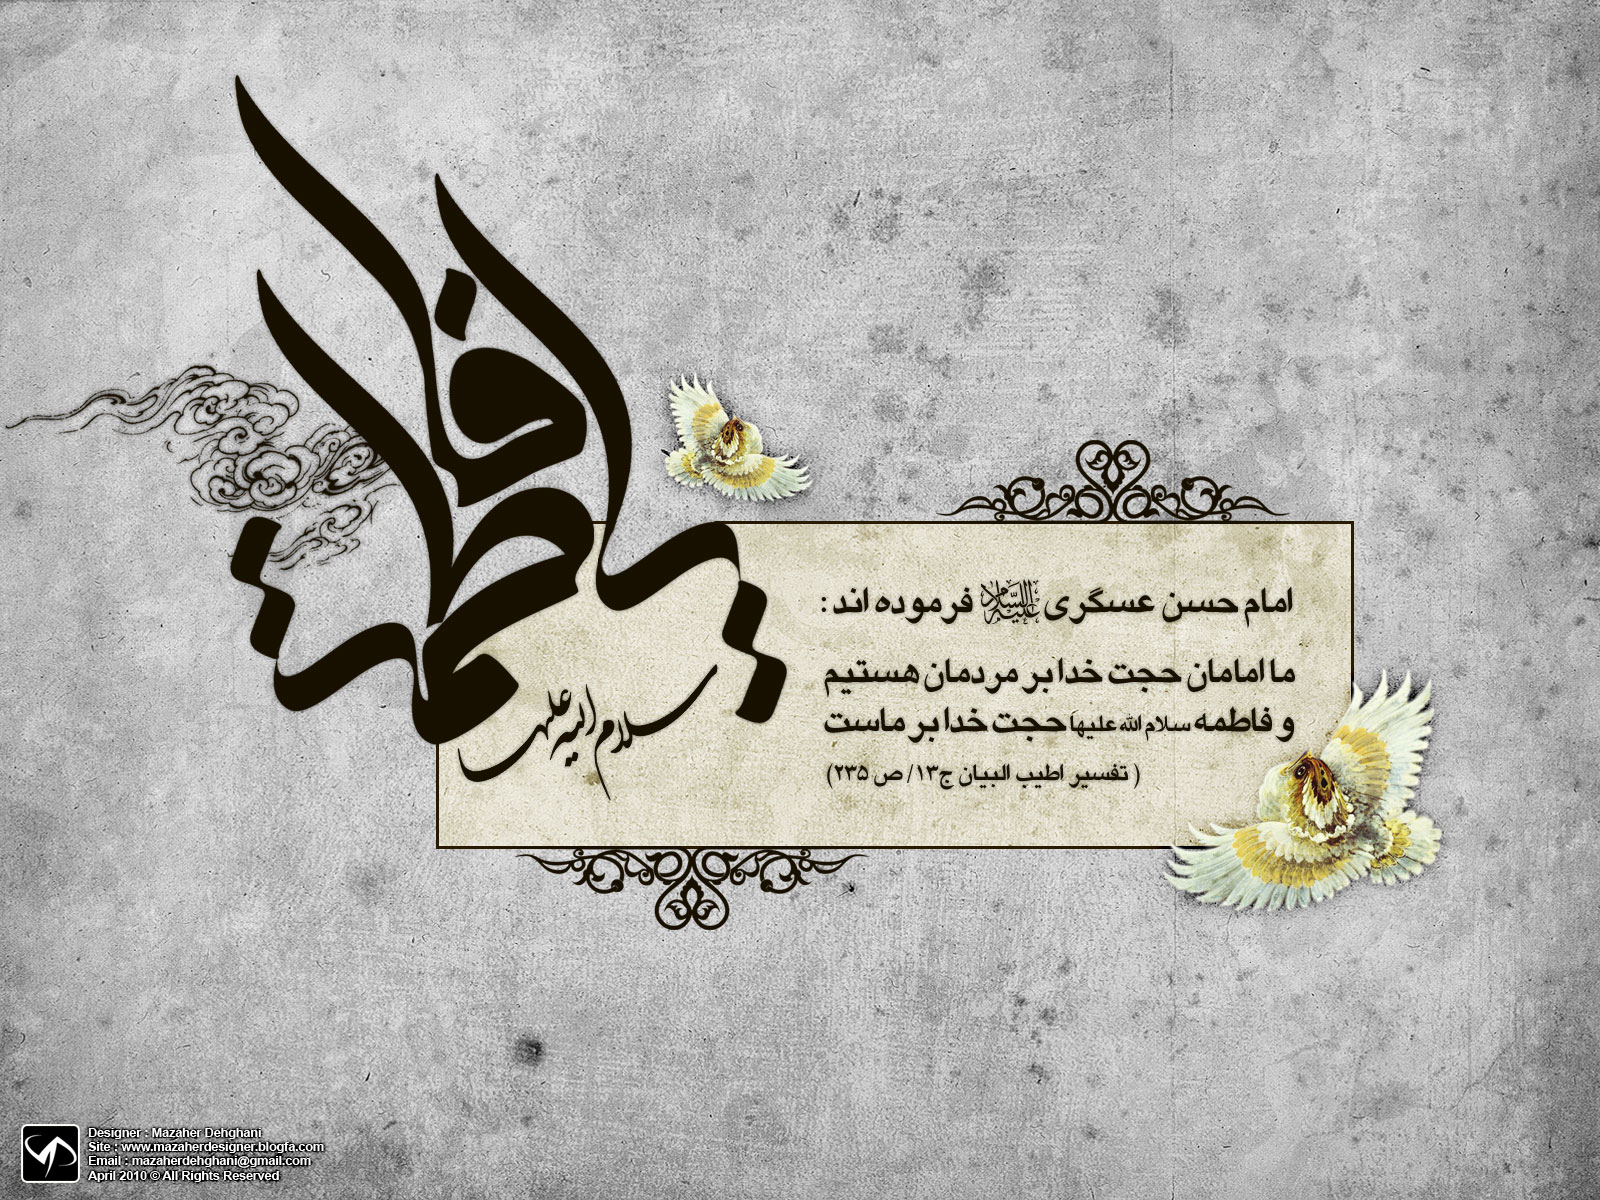 یا فاطمة
سلام الله علیها
امام حسن عسگری علیه السلام فرموده اند :
ما امامان حجت خدا بر مردمان هستیم
و فاطمه سلام الله علیها حجت خدا بر ماست
( تفسیر اطیب البیان ج۱۳/ ص ۲۳۵)
Designer : Mazaher Dehghani
Site : www.mazaherdesigner.blogfa.com
Email : mazaherdehghani@gmail.com
April 2010 © All Rights Reserved